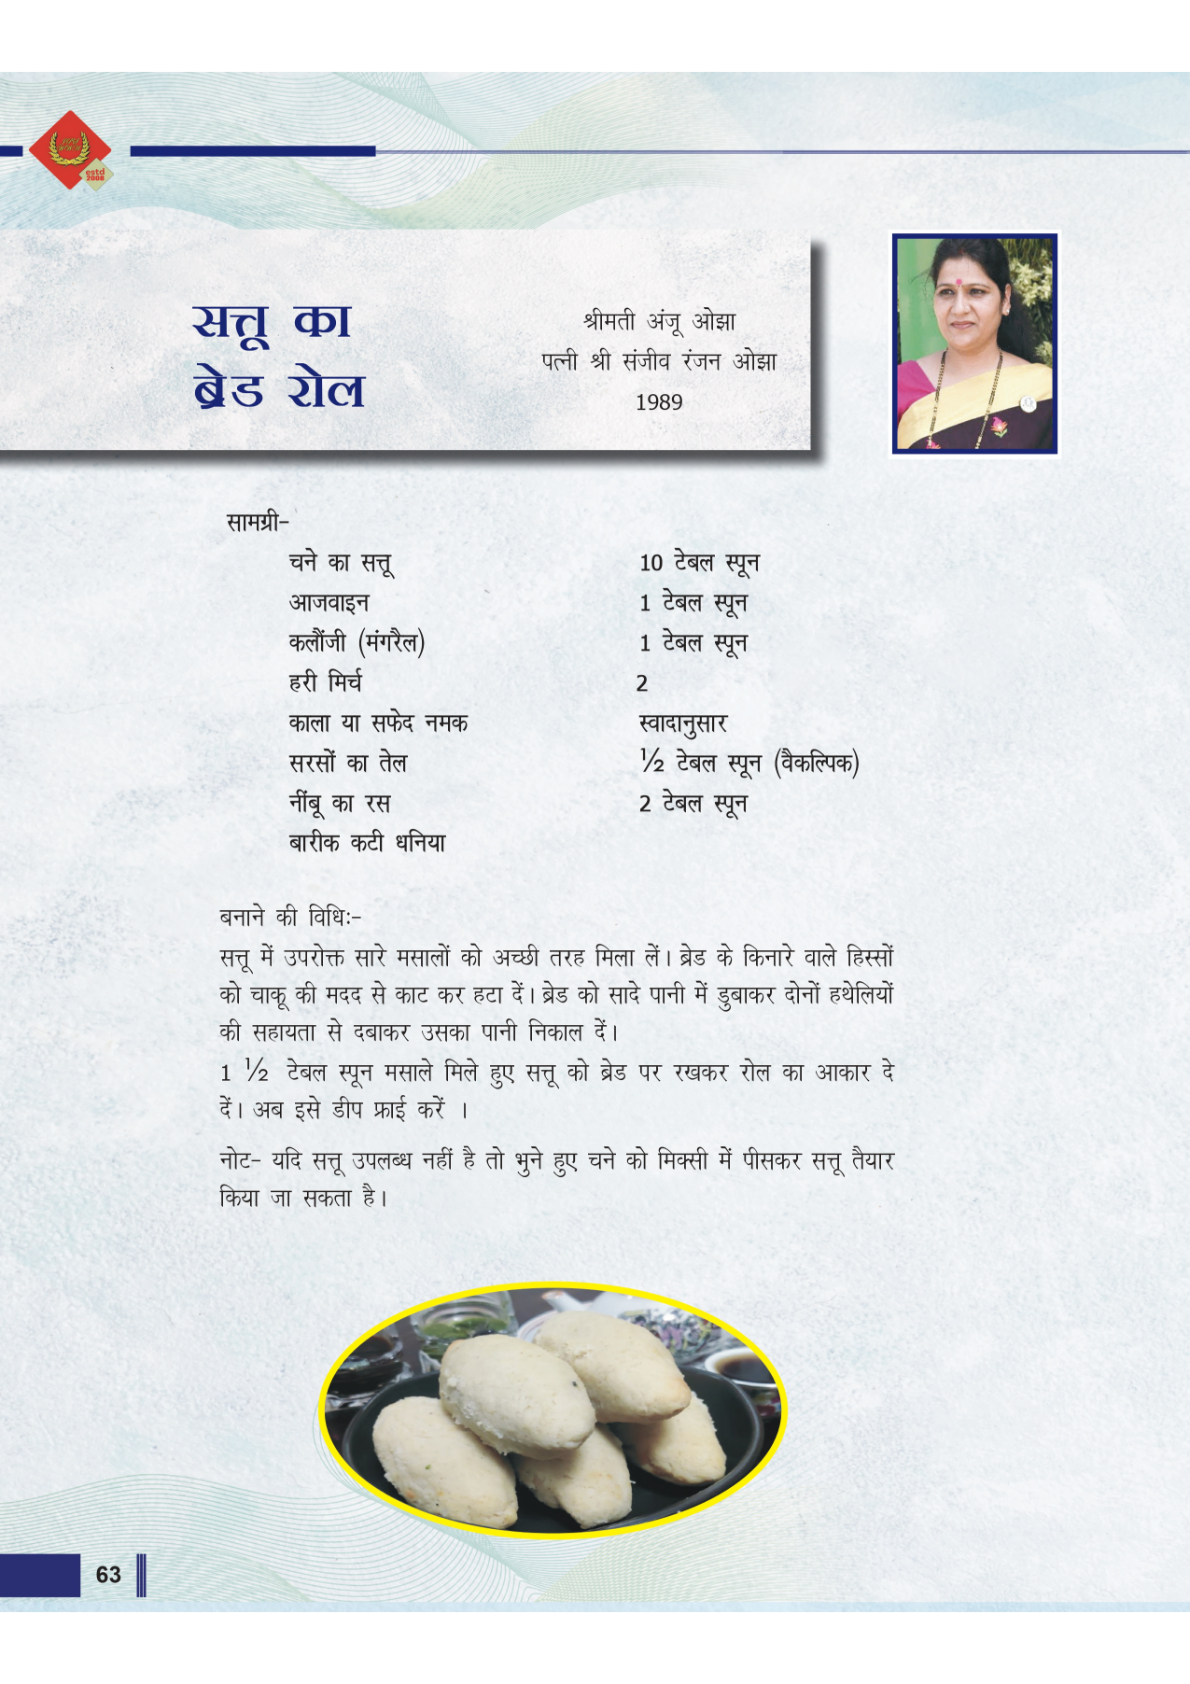 estd
2008
सत्तू का
ब्रेड रोल
श्रीमती अंजू ओझा
पत्नी श्री संजीव रंजन ओझा
1989
सामग्री-
चने का सत्तू 10 टेबल स्पून
आजवाइन 1 टेबल स्पून
कलौंजी (मंगरैल) 1 टेबल स्पून
हरी मिर्च 2
काला या सफेद नमक स्वादानुसार
सरसों का तेल ½ टेबल स्पून (वैकल्पिक)
नींबू का रस 2 टेबल स्पून
बारीक कटी धनिया
बनाने की विधिः-
सत्तू में उपरोक्त सारे मसालों को अच्छी तरह मिला लें। ब्रेड के किनारे वाले हिस्सों
को चाकू की मदद से काट कर हटा दें। ब्रेड को सादे पानी में डुबाकर दोनों हथेलियों
की सहायता से दबाकर उसका पानी निकाल दें।
1 ½ टेबल स्पून मसाले मिले हुए सत्तू को ब्रेड पर रखकर रोल का आकार दे
दें। अब इसे डीप फ्राई करें ।
नोट- यदि सत्तू उपलब्ध नहीं है तो भुने हुए चने को मिक्सी में पीसकर सत्तू तैयार
किया जा सकता है।
63